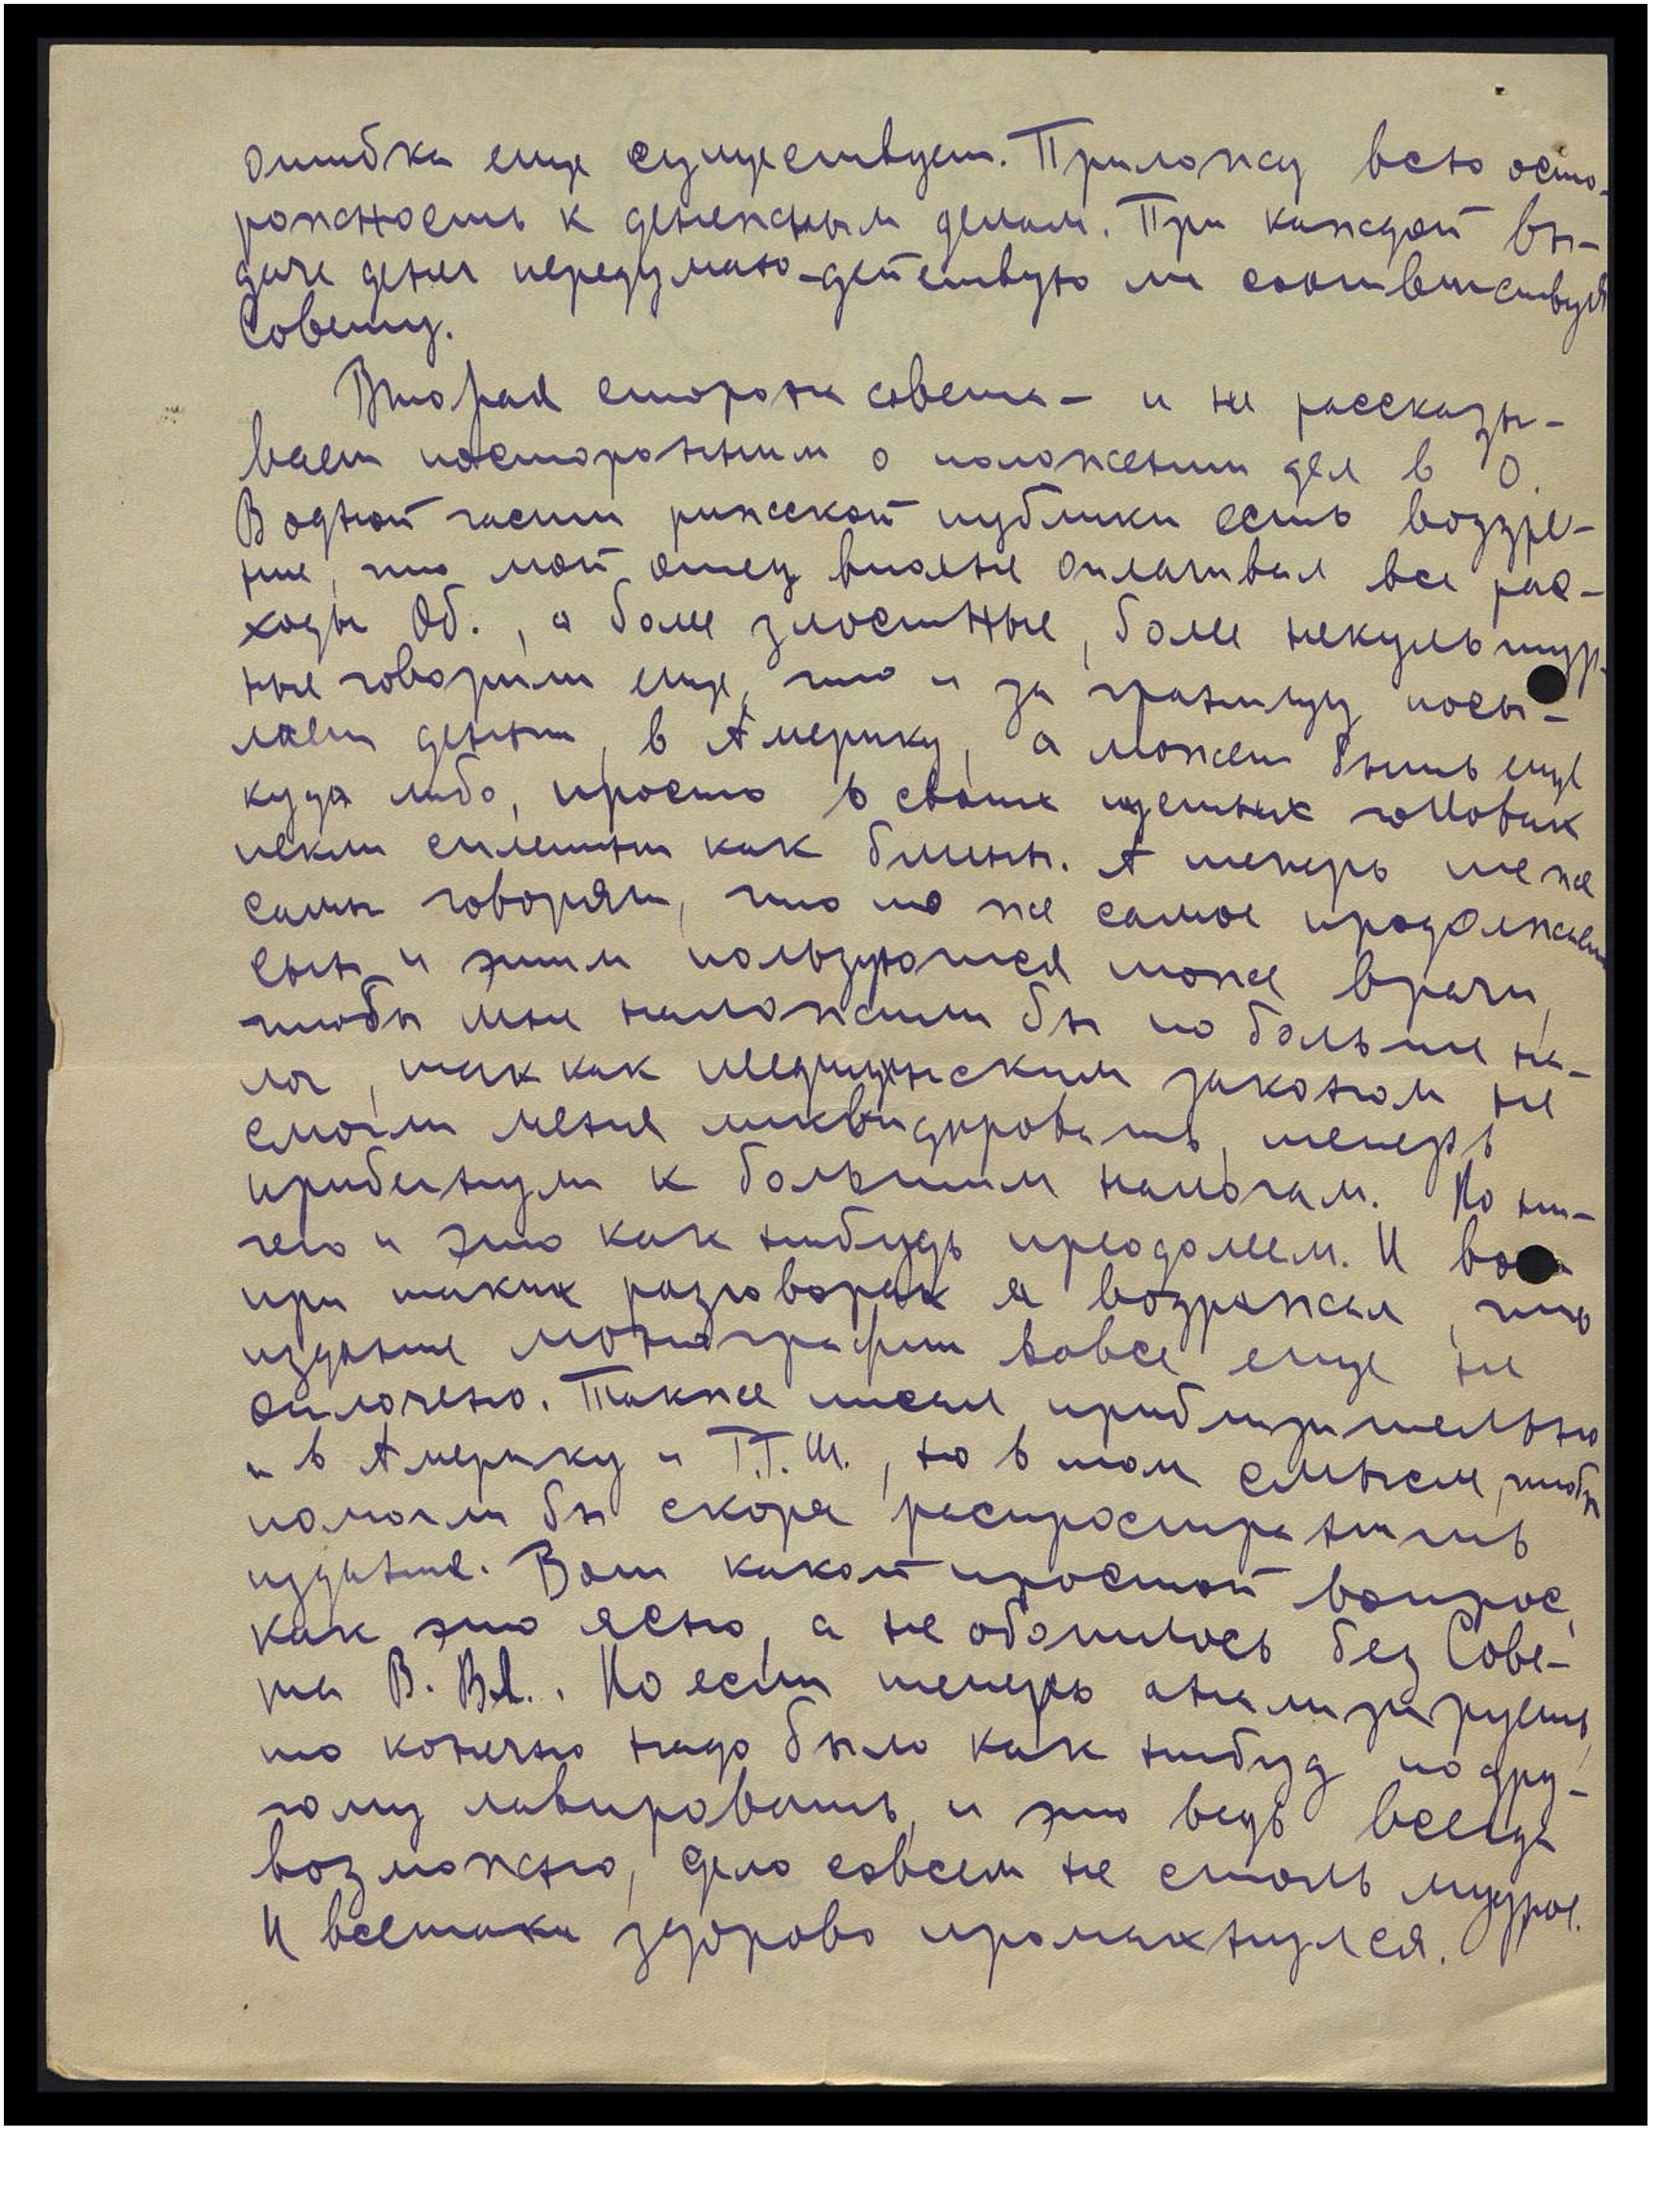 ошибка еще существует. Приложу всю осто-
рожность к денежным делам. При каждой вы-
даче денег передумаю - действую ли соответствуя
Совету.
Вторая сторона совета - и не рассказы-
вает посторонним о положении дел в О.
В одной части рижской публики есть воззре-
ние, что мой отец вполне оплачивал все рас-
ходы Об., а более злостные, более некультур-
ные говорили еще, что и за границу посы-
лает деньги, в Америку, а может быть еще
куда либо, просто в своих головах
пекли сплетни как блины. А теперь те же
самы говорят, что то же самое продолжает
сын и этим пользуются тоже врачи,
чтобы мне наложили бы по больше на-
лог, так как медицинским законом не
смогли меня ликвидировать, теперь
прибегнули к большим налогам. Но ни-
чего и это как нибудь преодолеем. И вот
при таких разговорах я возражал, что
издание монографии вовсе еще не
оплочено. Также писал приблизительно
и в Америку и Т.Г.Ш., но в том смысле, чтобы
помогли бы скоре распространить
издание. Вот какой простой вопрос,
как это ясно, а не обошлось без Сове-
та В. Вл.. Но если теперь анализируешь,
то конечно надо было как нибуд по дру-
гому лавировать, и это ведь всегда
возможно, дело совсем не столь мудрое.
И всетаки здорово промахнулся.